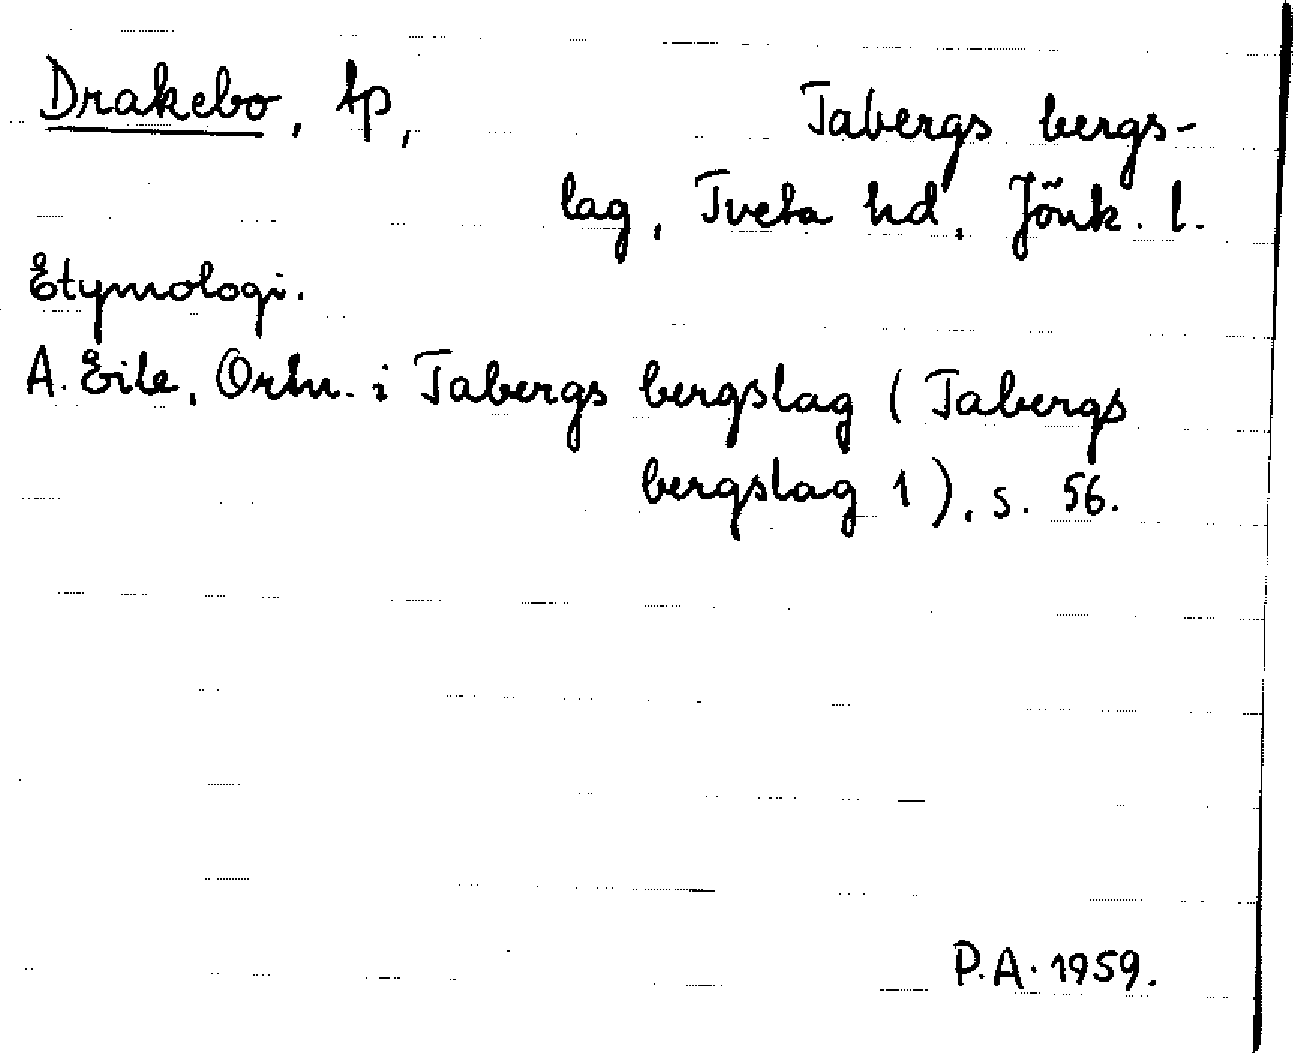 Drakebo, tp, Tabergs bergs-
lag, Tveta hd, Jönk. l.
Etymologi.
A. Eile, Ortn. i Tabergs bergslag (Tabergs
bergslag 1), s. 56.
P.A. 1959.